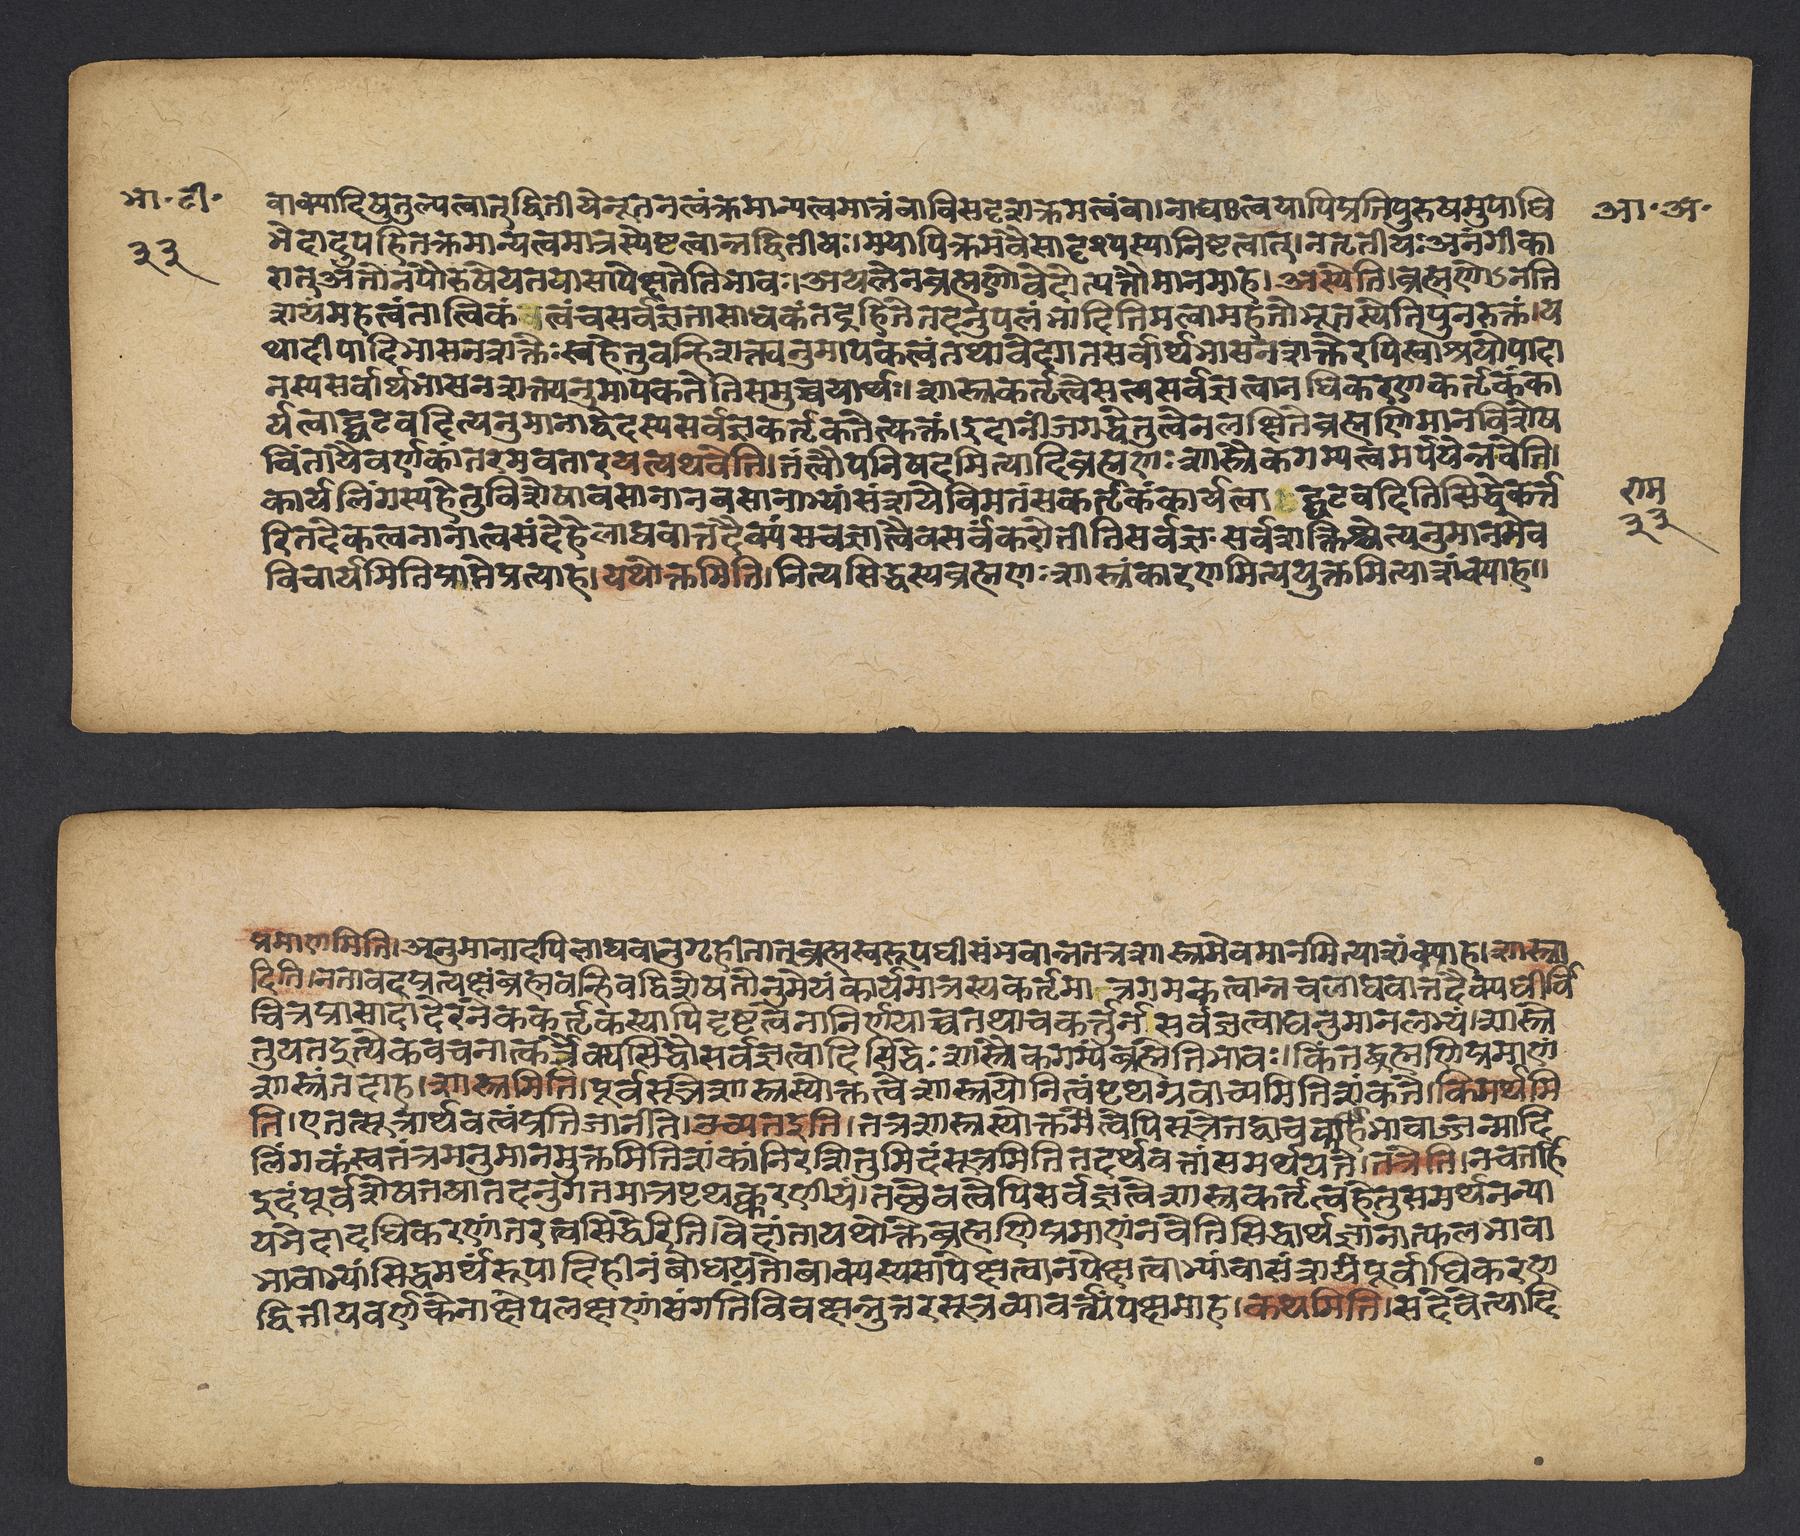 भा॰ टी॰
३३
आ॰ अ॰
वाक्यादिषुतुल्यत्वात्द्वितीयेनूतनत्वंक्रमान्यत्वमात्रंवाविसदृशक्रमत्वंवा।नाद्यःत्वयापिप्रतिपुरुषमुपाधि
भेदादुपहितक्रमान्यत्वमात्रस्येष्टत्वान्नद्वितीयः।मयापिक्रमेवैसादृश्यस्यानिष्टत्वात्।नतृतीयःअनंगीका
रात्अतोनपौरुषेयतयासापेक्षतेतिभावः।अथतेनब्रह्मणोवेदोत्पत्तौमानमाह।अस्येति।ब्रह्मणोऽनति
शयंमहत्वंतात्विकंत्वंचसर्वज्ञतासाधकंतद्रहितेतदनुपलंभादितिमत्वामहतोभूतस्येतिपुनरुक्तं।य
थादीपादिभासनशक्तेःस्वहेतुवन्हिशक्त्यनुमापकत्वंतथावेदगतसर्वार्थभासनशक्तेरपिस्वाश्रयोपादा
नस्यसर्वार्थभासनशक्त्यनुमापकतेतिसमुच्चयार्थः।शास्त्रकर्तृत्वेसत्यसर्वज्ञत्वानधिकरणकर्तृकंका
र्यत्वाद्घटवदित्यनुमानाद्वेदस्यसर्वज्ञकर्तृकतेत्युक्तं।इदानींजगद्धेतुत्वेनलक्षितेब्रह्मणिमानविशेष
चिंतायैवर्णकांतरमवतारयत्यथवेति।तंत्वौपनिषदमित्यादिब्रह्मणःशास्त्रैकगम्यत्वमर्पयेन्नवेति।
कार्यलिंगस्यहेतुविशेषावसानानवसानाभ्यांसंशयेविमतंसकर्तृकंकार्यत्वाद्घटवदितिसिद्धेकर्त्त
रितदेकत्वनानात्वसंदेहेलाघवात्तदैक्यंसचज्ञात्वैवसर्वंकरोतीतिसर्वज्ञःसर्वशक्तिश्चेत्यनुमानमेव
विचार्यमितिप्राप्तेप्रत्याह।यथोक्तमिति।नित्यसिद्धस्यब्रह्मणःशास्त्रंकारणमित्ययुक्तमित्याशंक्याह॥
राम
३३
प्रमाणमिति।अनुमानादपिलाघवानुगृहीतात्ब्रह्मस्वरूपधीसंभवान्नतत्रशास्त्रमेवमानमित्याशंक्याह।शास्त्रा
दिति।नतावदप्रत्यक्षंब्रह्मवन्हिवद्विशेषतोनुमेयंकार्यमात्रस्यकर्तृमात्रगमकत्वान्नचलाघवात्तदैक्यधीर्वि
चित्रप्रासादादेरनेककर्तृकस्यापिदृष्टत्वेनानिर्णयाच्चतथाचकर्त्तुर्नासर्वज्ञत्वाद्यनुमानलभ्यं।शास्त्र
तुयतइत्येकवचनात्कर्त्रैक्यसिद्धौसर्वज्ञत्वादिसिद्धेःशास्त्रैकगम्यंब्रह्मेतिभावः।किंतद्ब्रह्मणिप्रमाणं
शास्त्रंतदाह।शास्त्रमिति।पूर्वसूत्रेशास्त्रस्योक्तत्वेशास्त्रयोनित्वंपृथग्नवाच्यमितिशंकते।किमर्थमि
ति।एतत्सूत्रार्थवत्वंप्रतिजानीते।उच्यतइति।तत्रशास्त्रस्योक्तमत्वेपिसूत्रेतद्वाचकाभावाज्जन्मादि
लिंगकंस्वतंत्रमनुमानमुक्तमितिशंकांनिरसितुमिदंसूत्रमितितदर्थवत्तांसमर्थयते।तत्रेति।नचतर्हि
इदंपूर्वशेषतयातदनुगतमात्रपृथक्करणीयं।तच्छेवत्वेपिसर्वज्ञत्वेशास्त्रकर्तृत्वहेतुसमर्थनन्या
यभेदादधिकरणांतरत्वसिद्धेरिति।वेदांतायथोक्तेब्रह्मणिप्रमाणंनवेतिसिद्धार्थज्ञानात्फलभावा
भावाभ्यांसिद्धमर्थंरूपादिहीनंबोधयतोवाक्यस्यसापेक्षत्वानपेक्षत्वाभ्यांवासंशयेपूर्वाधिकरण
द्वितीयवर्णकेनाक्षेपलक्षणांसंगतिंविवक्षन्नुत्तरसूत्रव्यावर्त्त्यंपक्षमाह।कथमिति।सदेवेत्यादि